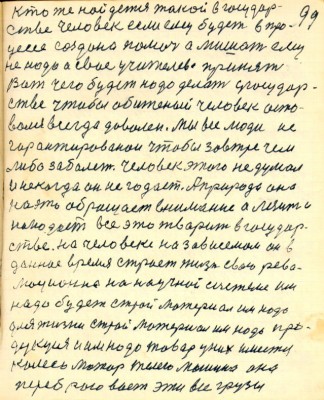 99
Кто же найдется такой в государ-
стве человек если ему будет в про-
цессе создана помощ а мешать ему
не надо а свое учителево принять
Вот чего будет надо делать в государ-
стве чтобы обиженый человек осто-
вался всегда доволен. Мы все люди не
гарантированы чтобы завтре чем
либо заболеть. человек этого не думал
и некогда он не гадает. А природа она
на это обращает внимание а
находит все это творит в государ-
стве. на человеке на зависемом он в
данное время строет жизн свою рево-
люционна на научной системе им
надо будет строй материал им надо
для жизни строй материал им надо про-
дукция и им надо товар у них имеется
колесо мотор тело машина она
перебрасовает эти все грузы